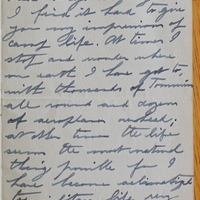 I find it hard to give
you my impressions of
camp life. At times I
stop and wonder where
on earth I have got to
with thousands of Tommies
all round and dozens
of aeroplanes overhead;
at other times the life
seems the most natural
thing possible for I
have become acclimatised
to military life very